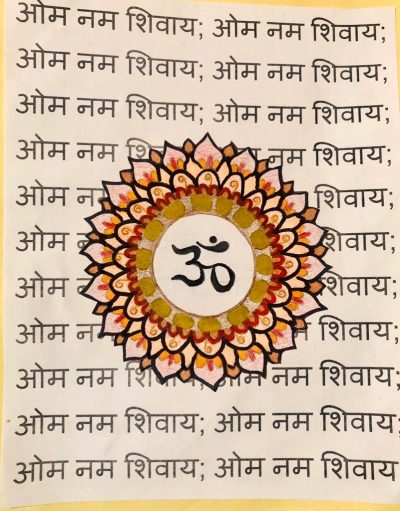 ओम नम शिवाय; ओम नम शिवाय;
ओम नम शिवाय; ओम नम शिवाय;
ओम नम शिवाय; ओम नम शिवाय;
ओम नम नम शिवाय;
ओम शिवाय;
ओम शिवाय;
ॐ
ओम शिवाय;
ओम शिवाय;
ओम नम ओम नम शिवाय;
ओम नम शिवाय; ओम नम शिवाय;
ओम नम शिवाय; ओम नम शिवाय